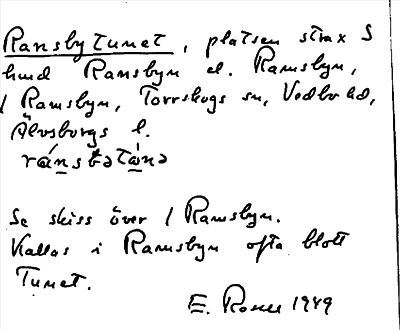 Ransbytunet, platsen strax S
Ransbyn el. Ramsbyn,
/ Ramsbyn, Torrskogs sn, Vedbo hd,
Älvsborgs l.
ránsbətànə
Se skiss över / Ramsbyn.
Kallas i Ramsbyn ofta blott
Tunet.
E. Rosell 1949